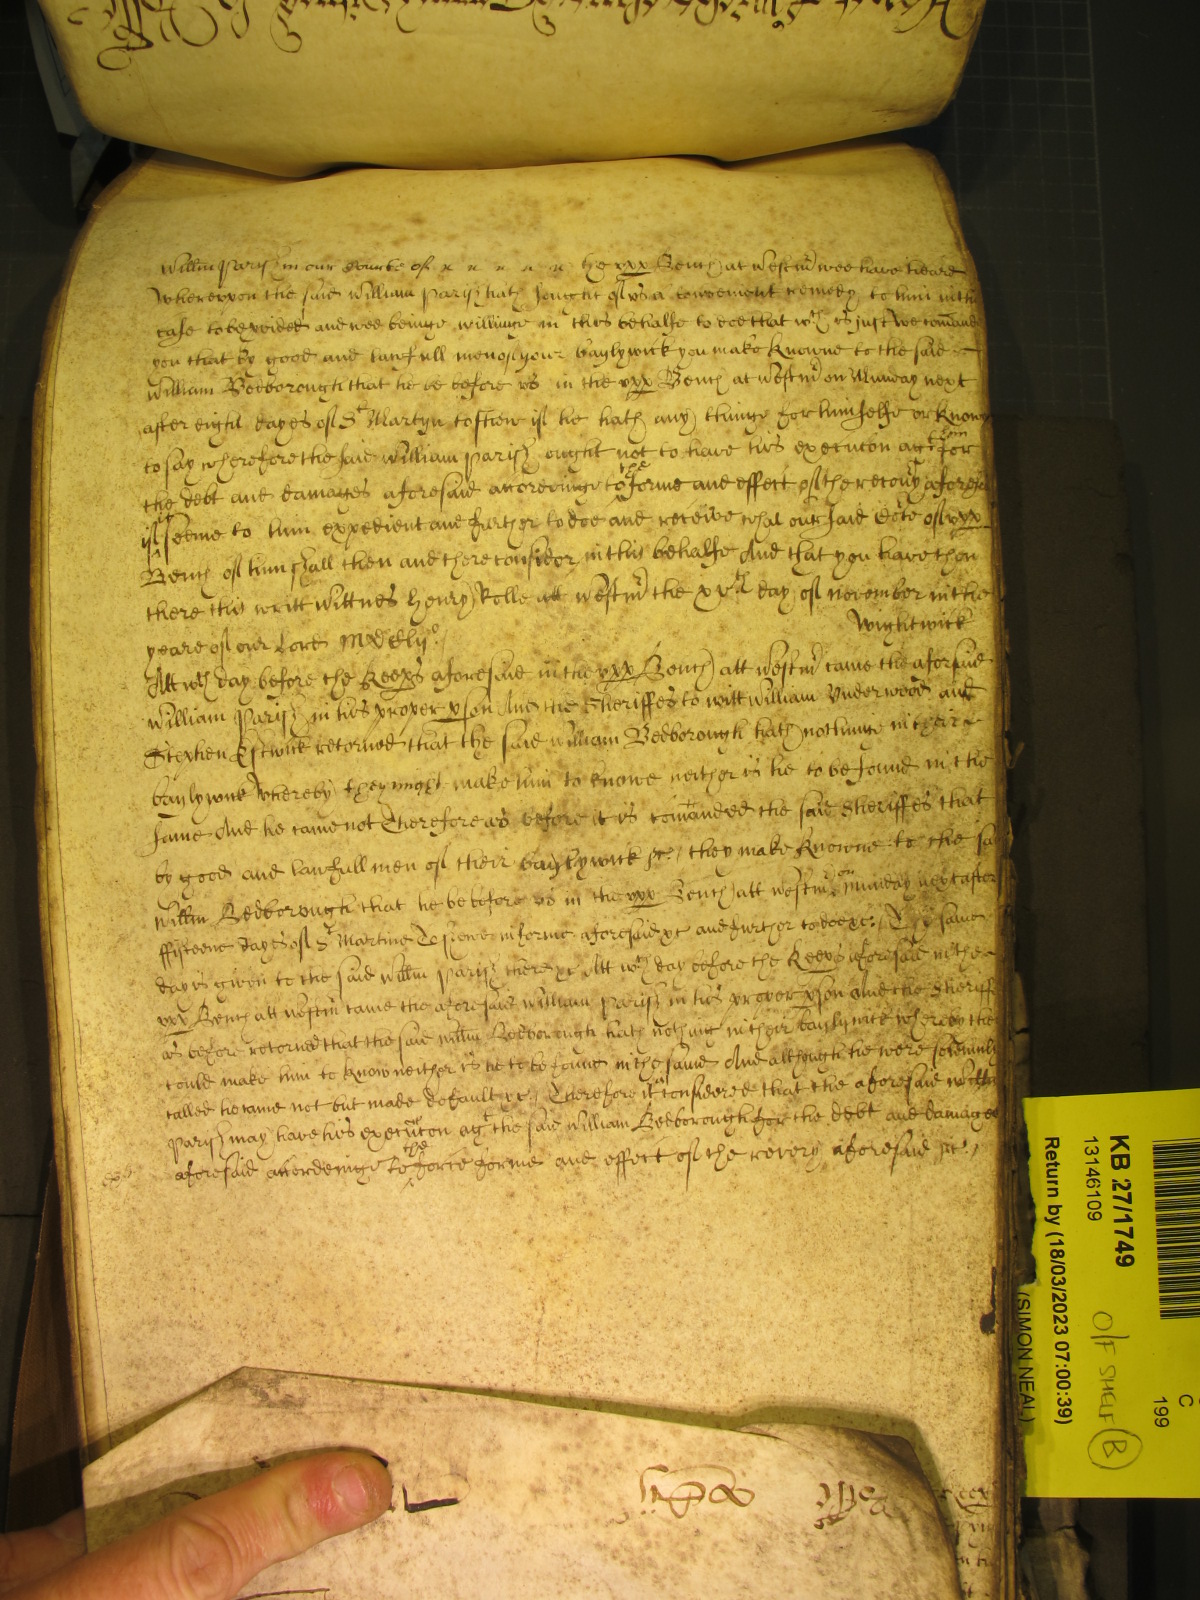 Willm Parish in our Courte of the vpp Bench at Westmr wee have heard
Whereuppon the said William Parish hath sought of us a convenient remedy to him in this
case to be provided and wee beinge willinge in this behalfe to doe that wch is just Wee comand
you that by good and lawfull men of your baylywick you make knowne to the said
William Bedborough that he be before us in the vpp Bench at Westmr on Munday next
after eight dayes of St Martyn to shew if he hath any thinge for himselfe or knowe
to say wherefore the said William Parish ought not to have his execucon agt him for
the debt and damages aforesaid accordinge to the forme and effect of the recovy aforesaid
if it seeme to him expedient and further to doe and receive what our said Corte of vpp
Bench of him shall then and there consider in this behalfe And that you have then
there this writt Wittnes Henry Rolle att Westmr the xvth day of November in the
Wightwick
yeare of our Lord MDClijo
Att wch day before the Keeps aforesaid in the vpp Bench att Westmr came the aforsaid
William Parish in his proper pson And the Sheriffes to witt William Underwood and
Stephen Estwick retorned that the said William Bedborough hath nothinge in their
baylywick Whereby they might make him to knowe neither is he to be found in the
same And he came not Therefore as before it is comanded the said Sheriffes that
by good and lawfull men of their baylywick &c they make knowne to the sd
Willm Bedborough that he be before us in the vpp Bench att Westmr on munday next after
fifteene dayes of St Martine To shewe in forme aforesaid &c and further to doe &c The same
day is given to the said Willm Parish there &c Att wch day before the Keeps aforesaid in the
vpp Bench att Westmr came the aforesaid William Parish in his proper pson And the Sheriff
as before retorned that the said Willm Bedborough hath nothing in their baylywick whereby they
could make him to know neither is he to be found in the same And although he were solemnli
called he came not but made default &c Therefore it is considered that the aforesaid Willm
Parish may have his execucon agt the said William Bedborough for the debt and damages
aforesaid accordeinge to the force forme and effect of the recovery aforesaid &c
KB 27/1749
13146109
Return by (18/03/2023 07:00:39)
(SIMON NEAL)
O/F SHELF B
C
199